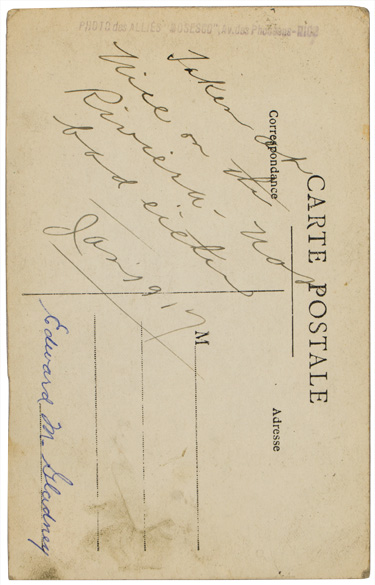 PHOTO des ALLIÉS "MOSESCO", Av. des Phocéens-NICE
CARTE POSTALE
Correspondance
Adresse
Taken at
Nice on the
Riviera. not
bad either
Jan
M
Edward M. Gladney